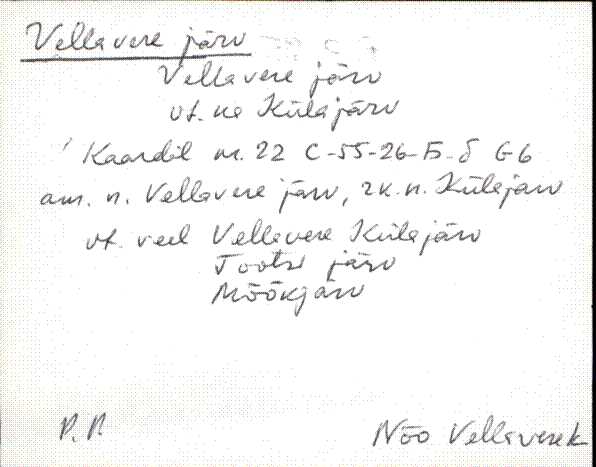 Vellavere järv
Vellavere järv
vt. ka Külajärv
Kaardil nr. 22 C-55-26-Б-δ G-6
am. n. Vellavere järv, rk. n. Külajärv
vt. veel Vellavere Külajärv
Tootsi järv
Mõõkjärv
P. P.
Nõo Vellavere k